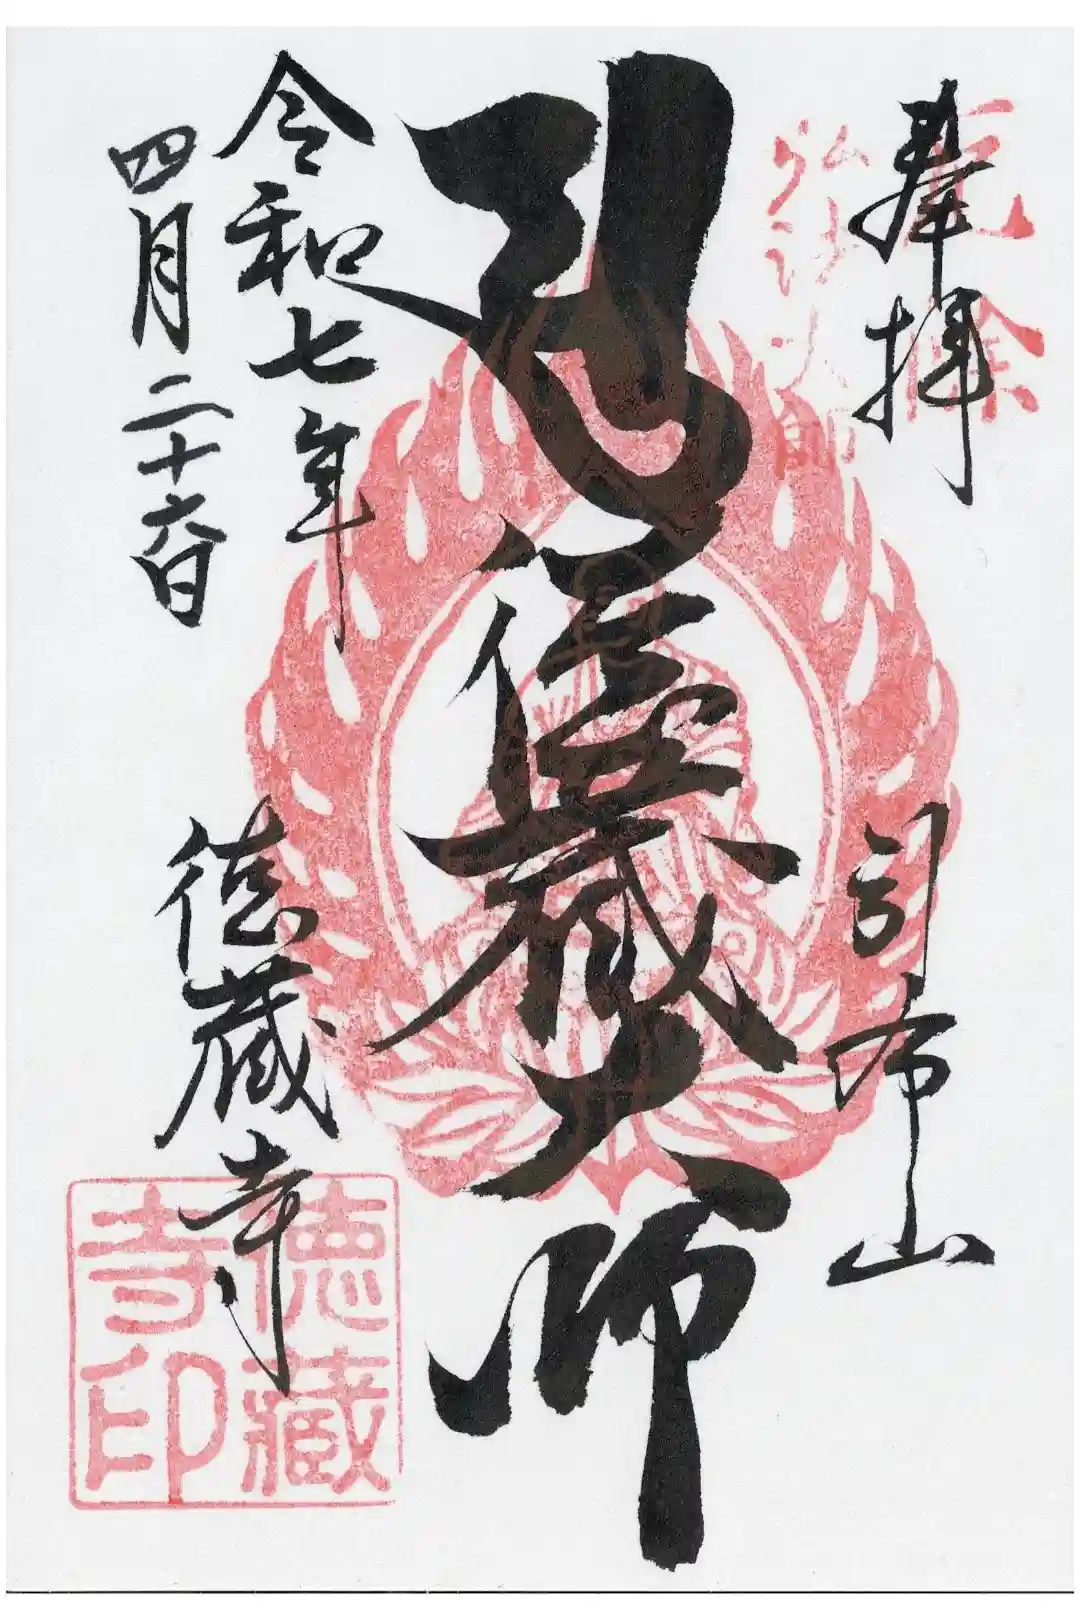 奉拝
厄除
弘法大師
引布山
弘蔵大師
令和七年
四月二十六日
徳蔵寺
徳蔵
寺印